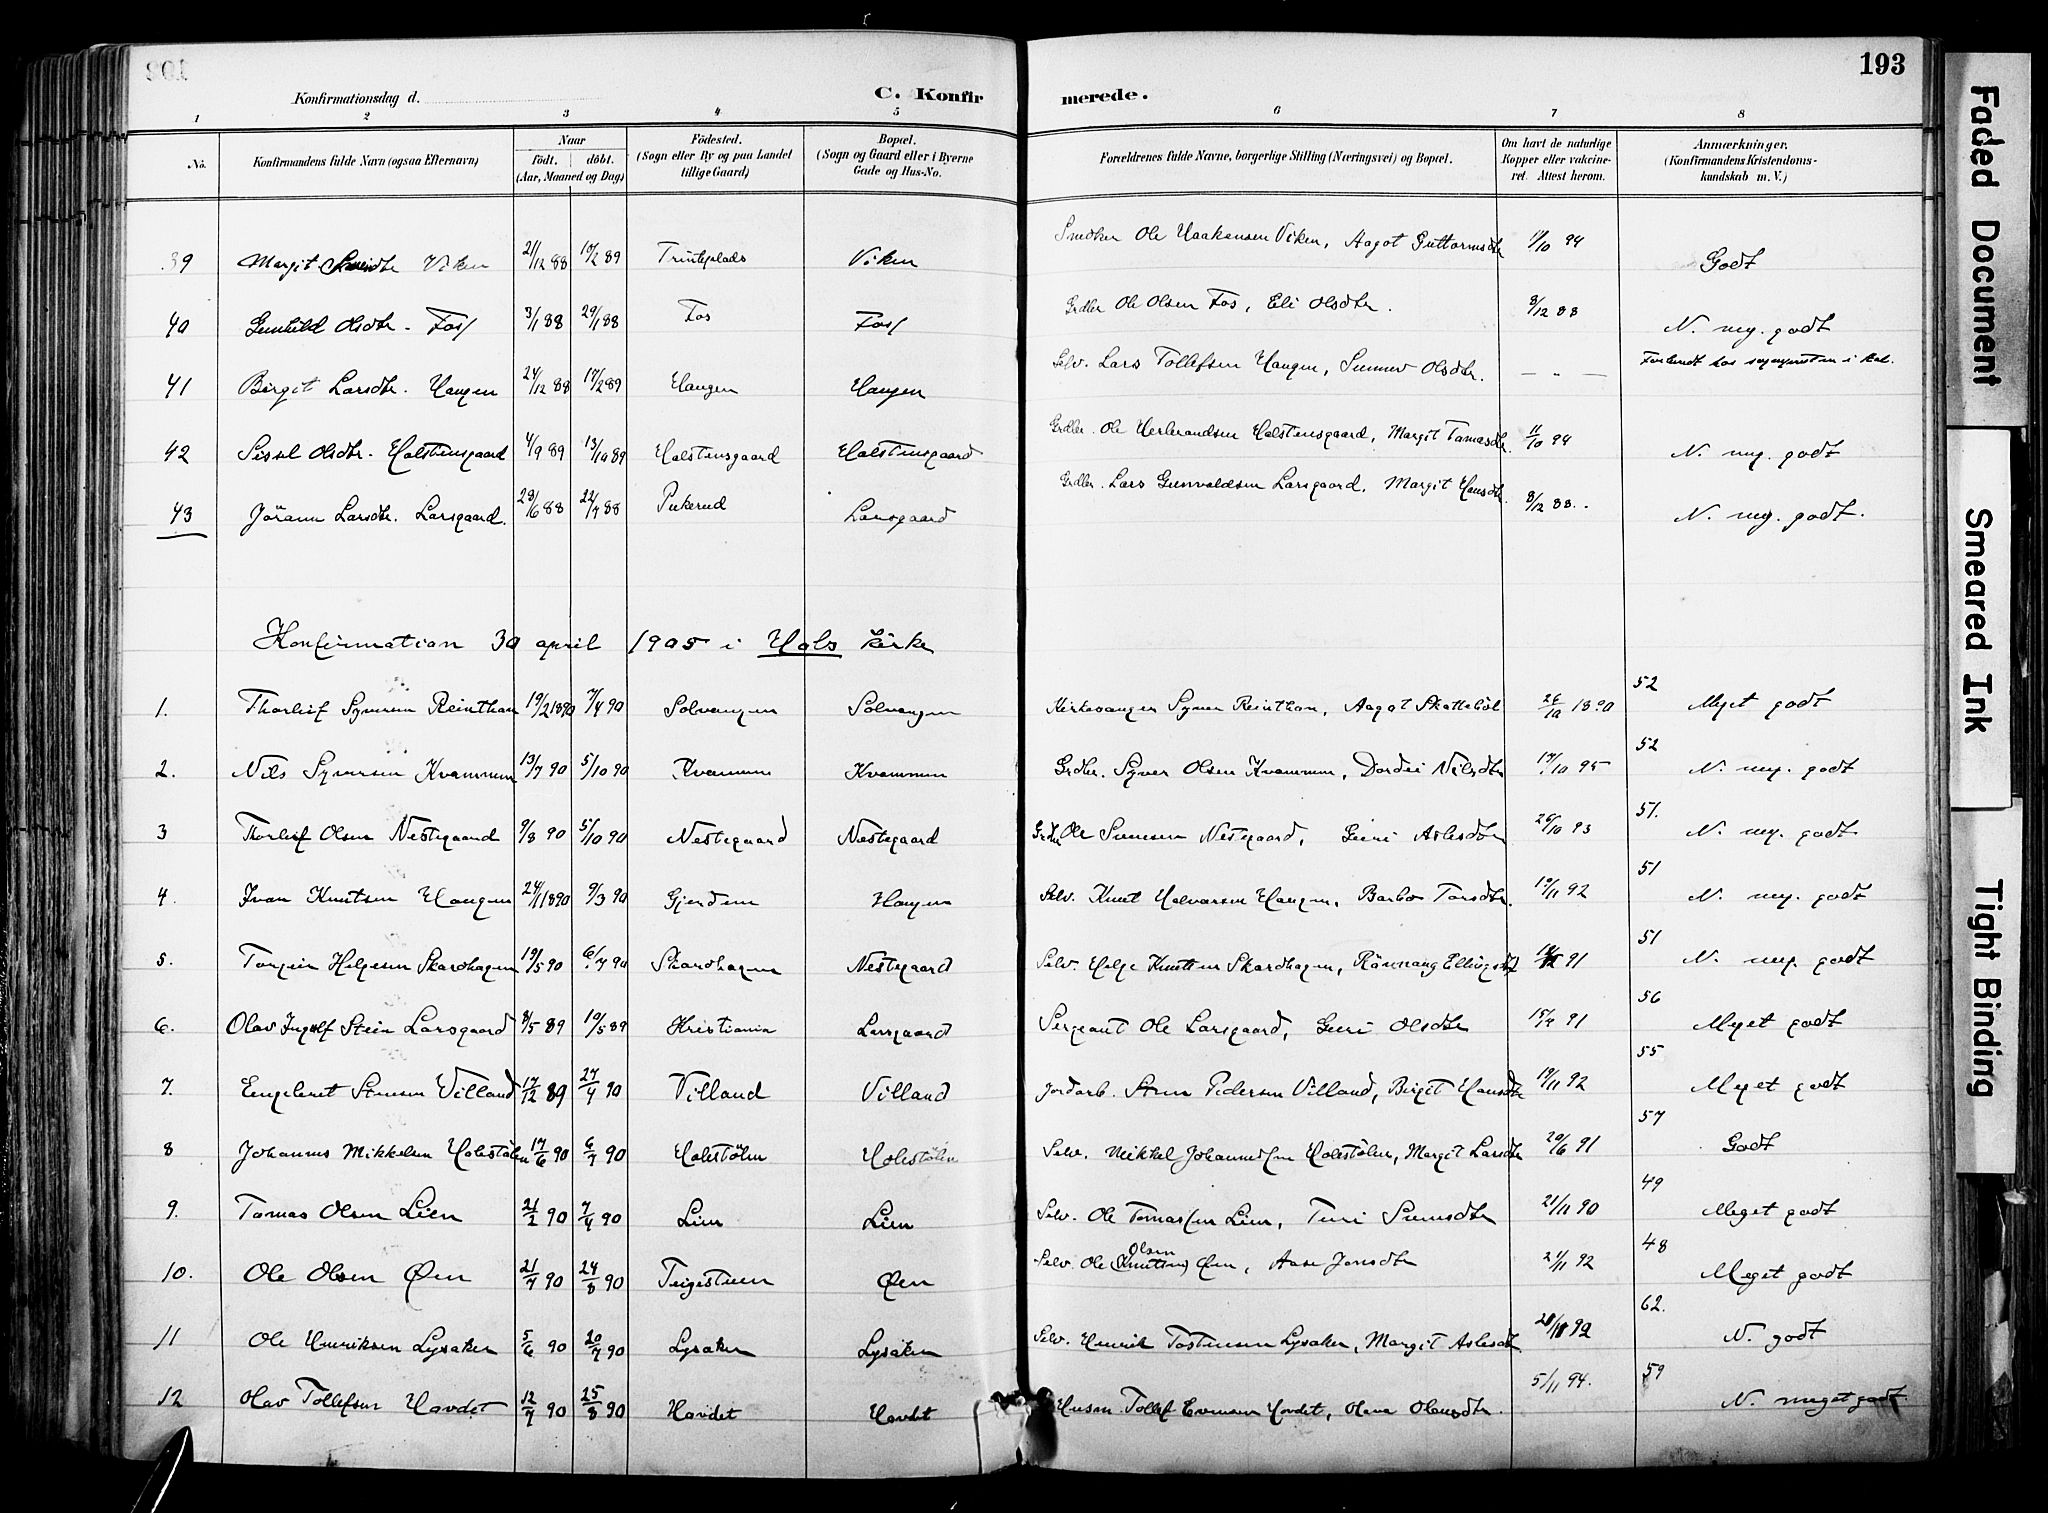 193
Konfirmationsdag d.
C. Konfirmerede.
1 2 3 4 5 6 7 8
No. Konfirmandens fulde Navn (ogsaa Efternavn) Naar födt. döbt. (Aar, Maaned og Dag) Födested. (Sogn eller By og paa Landet tillige Gaard) Bopæl. (Sogn og Gaard eller i Byerne Gade og Hus-No. Forældrenes fulde Navne, borgerlige Stilling (Næringsvei) og Bopæl. Om havt de naturlige Kopper eller vakcineret. Attest herom. Anmærkninger. (Konfirmandens Kristendomskundskab m. V.)
39 Margit Viken 21/12 88 10/2 89 Trinteplads Viken Snedker Ole Haakensen Viken, Aagot Guttormsdtr 11/10 94 Godt
40 Gunhild Olsdtr. Foss 3/1 88 29/1 88 Fos Foss Grdbr Ole Olsen Fos, Eli Olsdtr. 8/12 88 N. meg. godt
41 Birgit Larsdtr. Haugen 24/12 88 17/2 89 Haugen Haugen Selv. Lars Tollefsen Haugen, Sunnev Olsdtr. — „ —
42 Sissel Olsdtr. Holstensgaard 4/9 89 13/10 89 Holstensgaard Holstensgaard Grdbr. Ole Herbrandsen Holstensgaard, Margit Tomasdtr. 11/10 94 N. meg. godt
43 Jörann Larsdtr. Larsgaard. 28/6 88 22/7 88 Pukerud Larsgaard Grdbr. Lars Gunvaldsen Larsgaard. Margit Hansdtr. 8/12 88. N. meg. godt.
Konfirmation 30 april 1905 i Hols kirke
1. Thorleif Syversen Reinthon 19/2 1890 7/4 90 Solvangen Solvangen Kirkesanger Syver Reinthon, Aagot Skattebøl 26/10 1890 52 Meget godt
2. Nils Syversen Kvammen 13/7 90 5/10 90 Kvammen Kvammen Grdbr. Syver Olsen Kvammen, Dordei Nilsdtr 17/10 95 52 N. meg. godt
3 Thorleif Olsen Nestegaard 9/8 90 5/10 90 Nestegaard Nestegaard Grdbr Ole Sveinsen Nestgaard, Guri Aslesdtr 26/10 93 51. N. meg. godt
4. Ivar Knutsen Haugen 24/1 1890 9/3 90 Gjerden Haugen Selv. Knut Halvorsen Haugen, Barbo Torsdtr. 10/11 92 51 N. meg. godt
5. Torgeir Helgesen Skardhagen 19/5 90 6/7 90 Skardhagen Nestegaard Selv. Helge Knutsen Skardhagen, Rönnaug Ellingsdtr 91 51 N. meg. godt
6. Olav Ingolf Stein Larsgaard 8/5 89 10/5 89 Kristiania Larsgaard Sergeant Ole Larsgaard, Guri Olsdtr 15/9 91 56 Meget godt
7. Engebret Steinsen Villand 17/12 89 27/4 90 Villand Villand Jordarb. Stein Pedersen Villand, Birgit Hansdtr 19/11 92 55 Meget godt
8 Johannes Mikkelsen Holestölen 17/6 90 6/7 90 Holestölen Holestölen Selv. Mikkel Johannessen Holestölen, Margit Larsdtr 20/6 91 57 Godt
9. Tomas Olsen Lien 21/2 90 7/4 90 Lien Lien Selv. Ole Tomassen Lien, Turi Sveinsdtr 21/11 90 49 Meget godt
10. Ole Olsen Øen 21/7 90 24/8 90 Teigesteen Øen Selv. Ole (Knutsen) Olsen Øen, Aase Jonsdtr 21/11 92 48 Meget godt
11 Ole Henriksen Lysaker 5/6 90 20/7 90 Lysaker Lysaker Selv. Henrik Tostensen Lysaker, Margit Aslesdtr. 92 62. N. godt
12 Olav Tollefsen Hovdet 12/7 90 25/8 90 Hovdet Hovdet Husm. Tollef Hovdet, 5/11 94. 59 N. meget godt.
Faded Document
Smeared Ink
Tight Binding